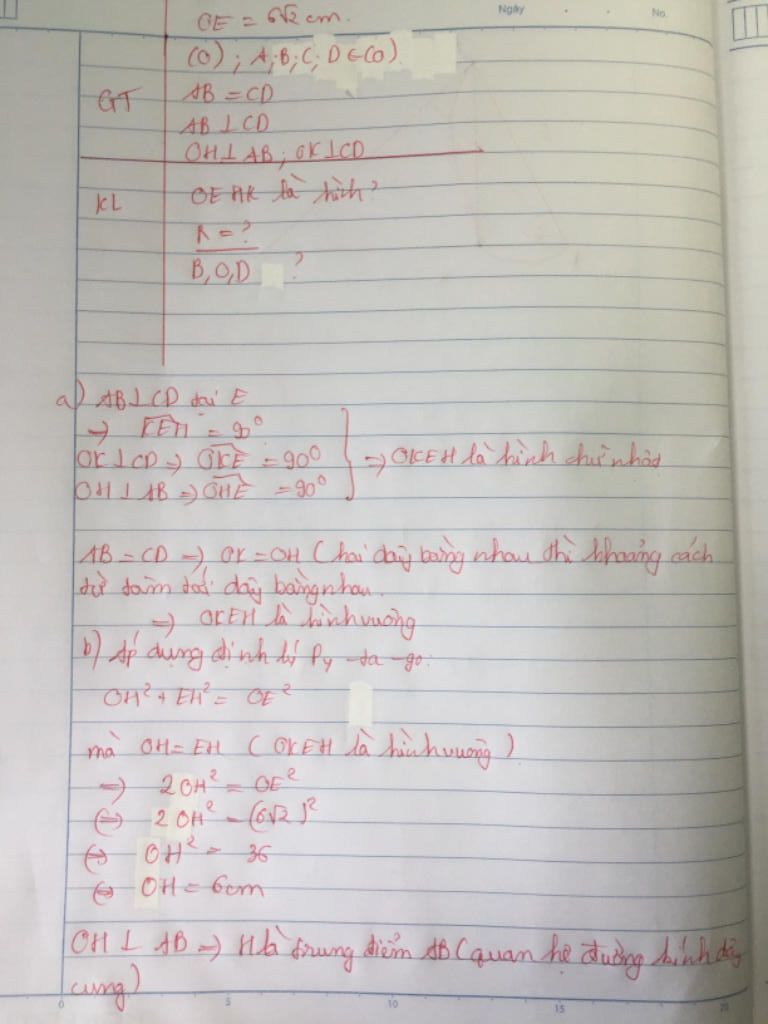 Ngày . . No.
OE = 6√2 cm.
(O) ; A; B; C; D ∈ (O)
GT AB = CD
AB ⊥ CD
OH ⊥ AB ; OK ⊥ CD
KL OEHK là hình?
R = ?
B, O, D ?
a) AB ⊥ CD tại E
→ KEH = 90°
OK ⊥ CD ⇒ OKE = 90° ⇒ OKEH là hình chữ nhật
OH ⊥ AB ⇒ OHE = 90°
AB = CD ⇒ OK = OH (hai dây bằng nhau thì khoảng cách
từ tâm tới dây bằng nhau.
⇒ OKEH là hình vuông
b) Áp dụng định lý Py-ta-go:
OH² + EH² = OE²
mà OH = EH (OKEH là hình vuông)
⇒ 2OH² = OE²
⇔ 2OH² = (6√2)²
⇔ OH² = 36
⇔ OH = 6cm
OH ⊥ AB ⇒ H là trung điểm AB (quan hệ đường kính dây
cung)
0 5 10 15 20